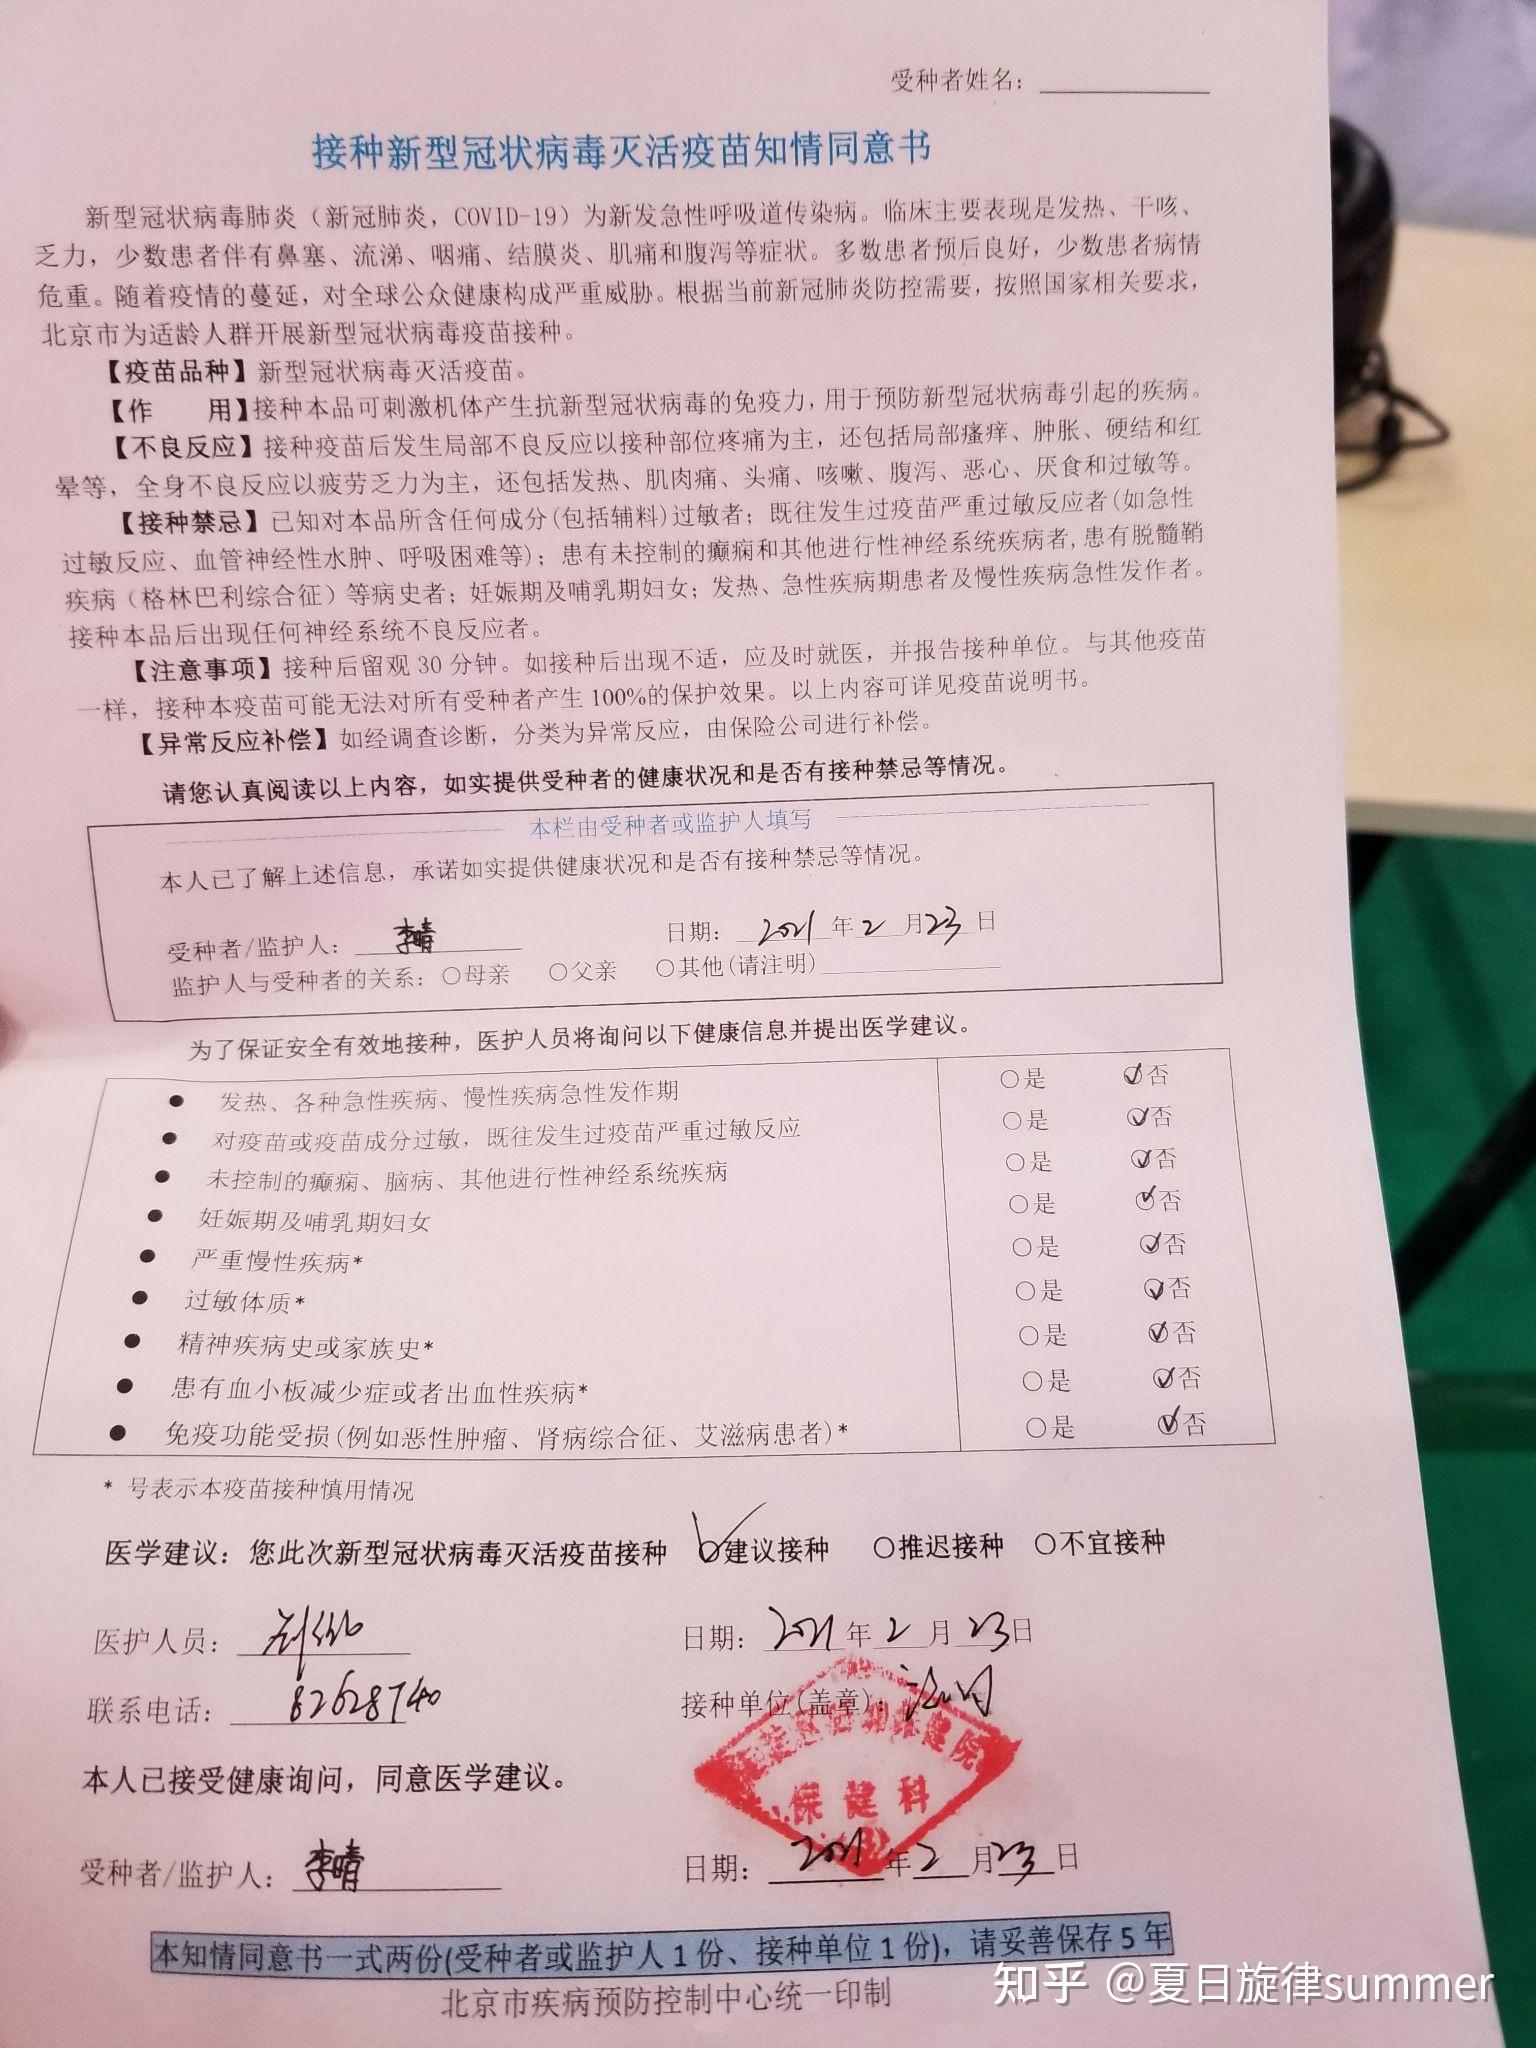 受种者姓名：
接种新型冠状病毒灭活疫苗知情同意书
新型冠状病毒肺炎（新冠肺炎，COVID-19）为新发急性呼吸道传染病。临床主要表现是发热、干咳、
乏力，少数患者伴有鼻塞、流涕、咽痛、结膜炎、肌痛和腹泻等症状。多数患者预后良好，少数患者病情
危重。随着疫情的蔓延，对全球公众健康构成严重威胁。根据当前新冠肺炎防控需要，按照国家相关要求，
北京市为适龄人群开展新型冠状病毒疫苗接种。
【疫苗品种】新型冠状病毒灭活疫苗。
【作 用】接种本品可刺激机体产生抗新型冠状病毒的免疫力，用于预防新型冠状病毒引起的疾病。
【不良反应】接种疫苗后发生局部不良反应以接种部位疼痛为主，还包括局部瘙痒、肿胀、硬结和红
晕等，全身不良反应以疲劳乏力为主，还包括发热、肌肉痛、头痛、咳嗽、腹泻、恶心、厌食和过敏等。
【接种禁忌】已知对本品所含任何成分(包括辅料)过敏者；既往发生过疫苗严重过敏反应者(如急性
过敏反应、血管神经性水肿、呼吸困难等)；患有未控制的癫痫和其他进行性神经系统疾病者,患有脱髓鞘
疾病（格林巴利综合征）等病史者；妊娠期及哺乳期妇女；发热、急性疾病期患者及慢性疾病急性发作者。
接种本品后出现任何神经系统不良反应者。
【注意事项】接种后留观30分钟。如接种后出现不适，应及时就医，并报告接种单位。与其他疫苗
一样，接种本疫苗可能无法对所有受种者产生100%的保护效果。以上内容可详见疫苗说明书。
【异常反应补偿】如经调查诊断，分类为异常反应，由保险公司进行补偿。
请您认真阅读以上内容，如实提供受种者的健康状况和是否有接种禁忌等情况。
本栏由受种者或监护人填写
本人已了解上述信息，承诺如实提供健康状况和是否有接种禁忌等情况。
受种者/监护人：李晴 日期：2021年2月23日
监护人与受种者的关系：○母亲 ○父亲 ○其他(请注明)
为了保证安全有效地接种，医护人员将询问以下健康信息并提出医学建议。
● 发热、各种急性疾病、慢性疾病急性发作期 ○是 ✓否
● 对疫苗或疫苗成分过敏，既往发生过疫苗严重过敏反应 ○是 ✓否
● 未控制的癫痫、脑病、其他进行性神经系统疾病 ○是 ✓否
● 妊娠期及哺乳期妇女 ○是 ✓否
● 严重慢性疾病* ○是 ✓否
● 过敏体质* ○是 ✓否
● 精神疾病史或家族史* ○是 ✓否
● 患有血小板减少症或者出血性疾病* ○是 ✓否
● 免疫功能受损(例如恶性肿瘤、肾病综合征、艾滋病患者)* ○是 ✓否
* 号表示本疫苗接种慎用情况
医学建议：您此次新型冠状病毒灭活疫苗接种 ✓建议接种 ○推迟接种 ○不宜接种
医护人员： 日期：2021年2月23日
联系电话：82628740 接种单位(盖章)：
保健科
本人已接受健康询问，同意医学建议。
受种者/监护人：李晴 日期：2021年2月23日
本知情同意书一式两份(受种者或监护人1份、接种单位1份)，请妥善保存5年
北京市疾病预防控制中心统一印制
知乎 @夏日旋律summer